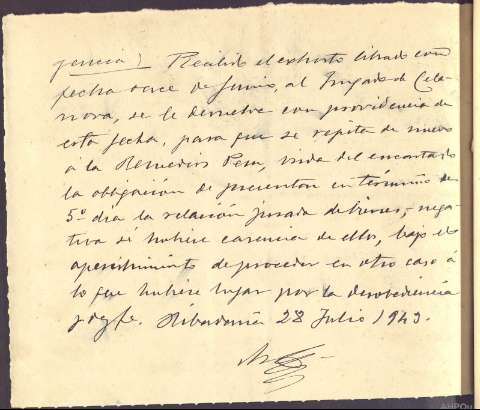 gencia) Recibido el exhorto librado con
fecha once de Junio, al Juzgado de Cela-
nova, se le devuelve con providencia de
esta fecha, para que se repita de nuevo
á la Remedios Pena, viuda del encartado
la obligación de presentar en término de
5º dia la relación jurada de bienes, nega-
tiva si hubiese carencia de ellos, bajo el
apercibimiento de proceder en otro caso á
lo que hubiese lugar por la desobediencia
y doy fe. Ribadavia 28 Julio 1943.
AHPOu